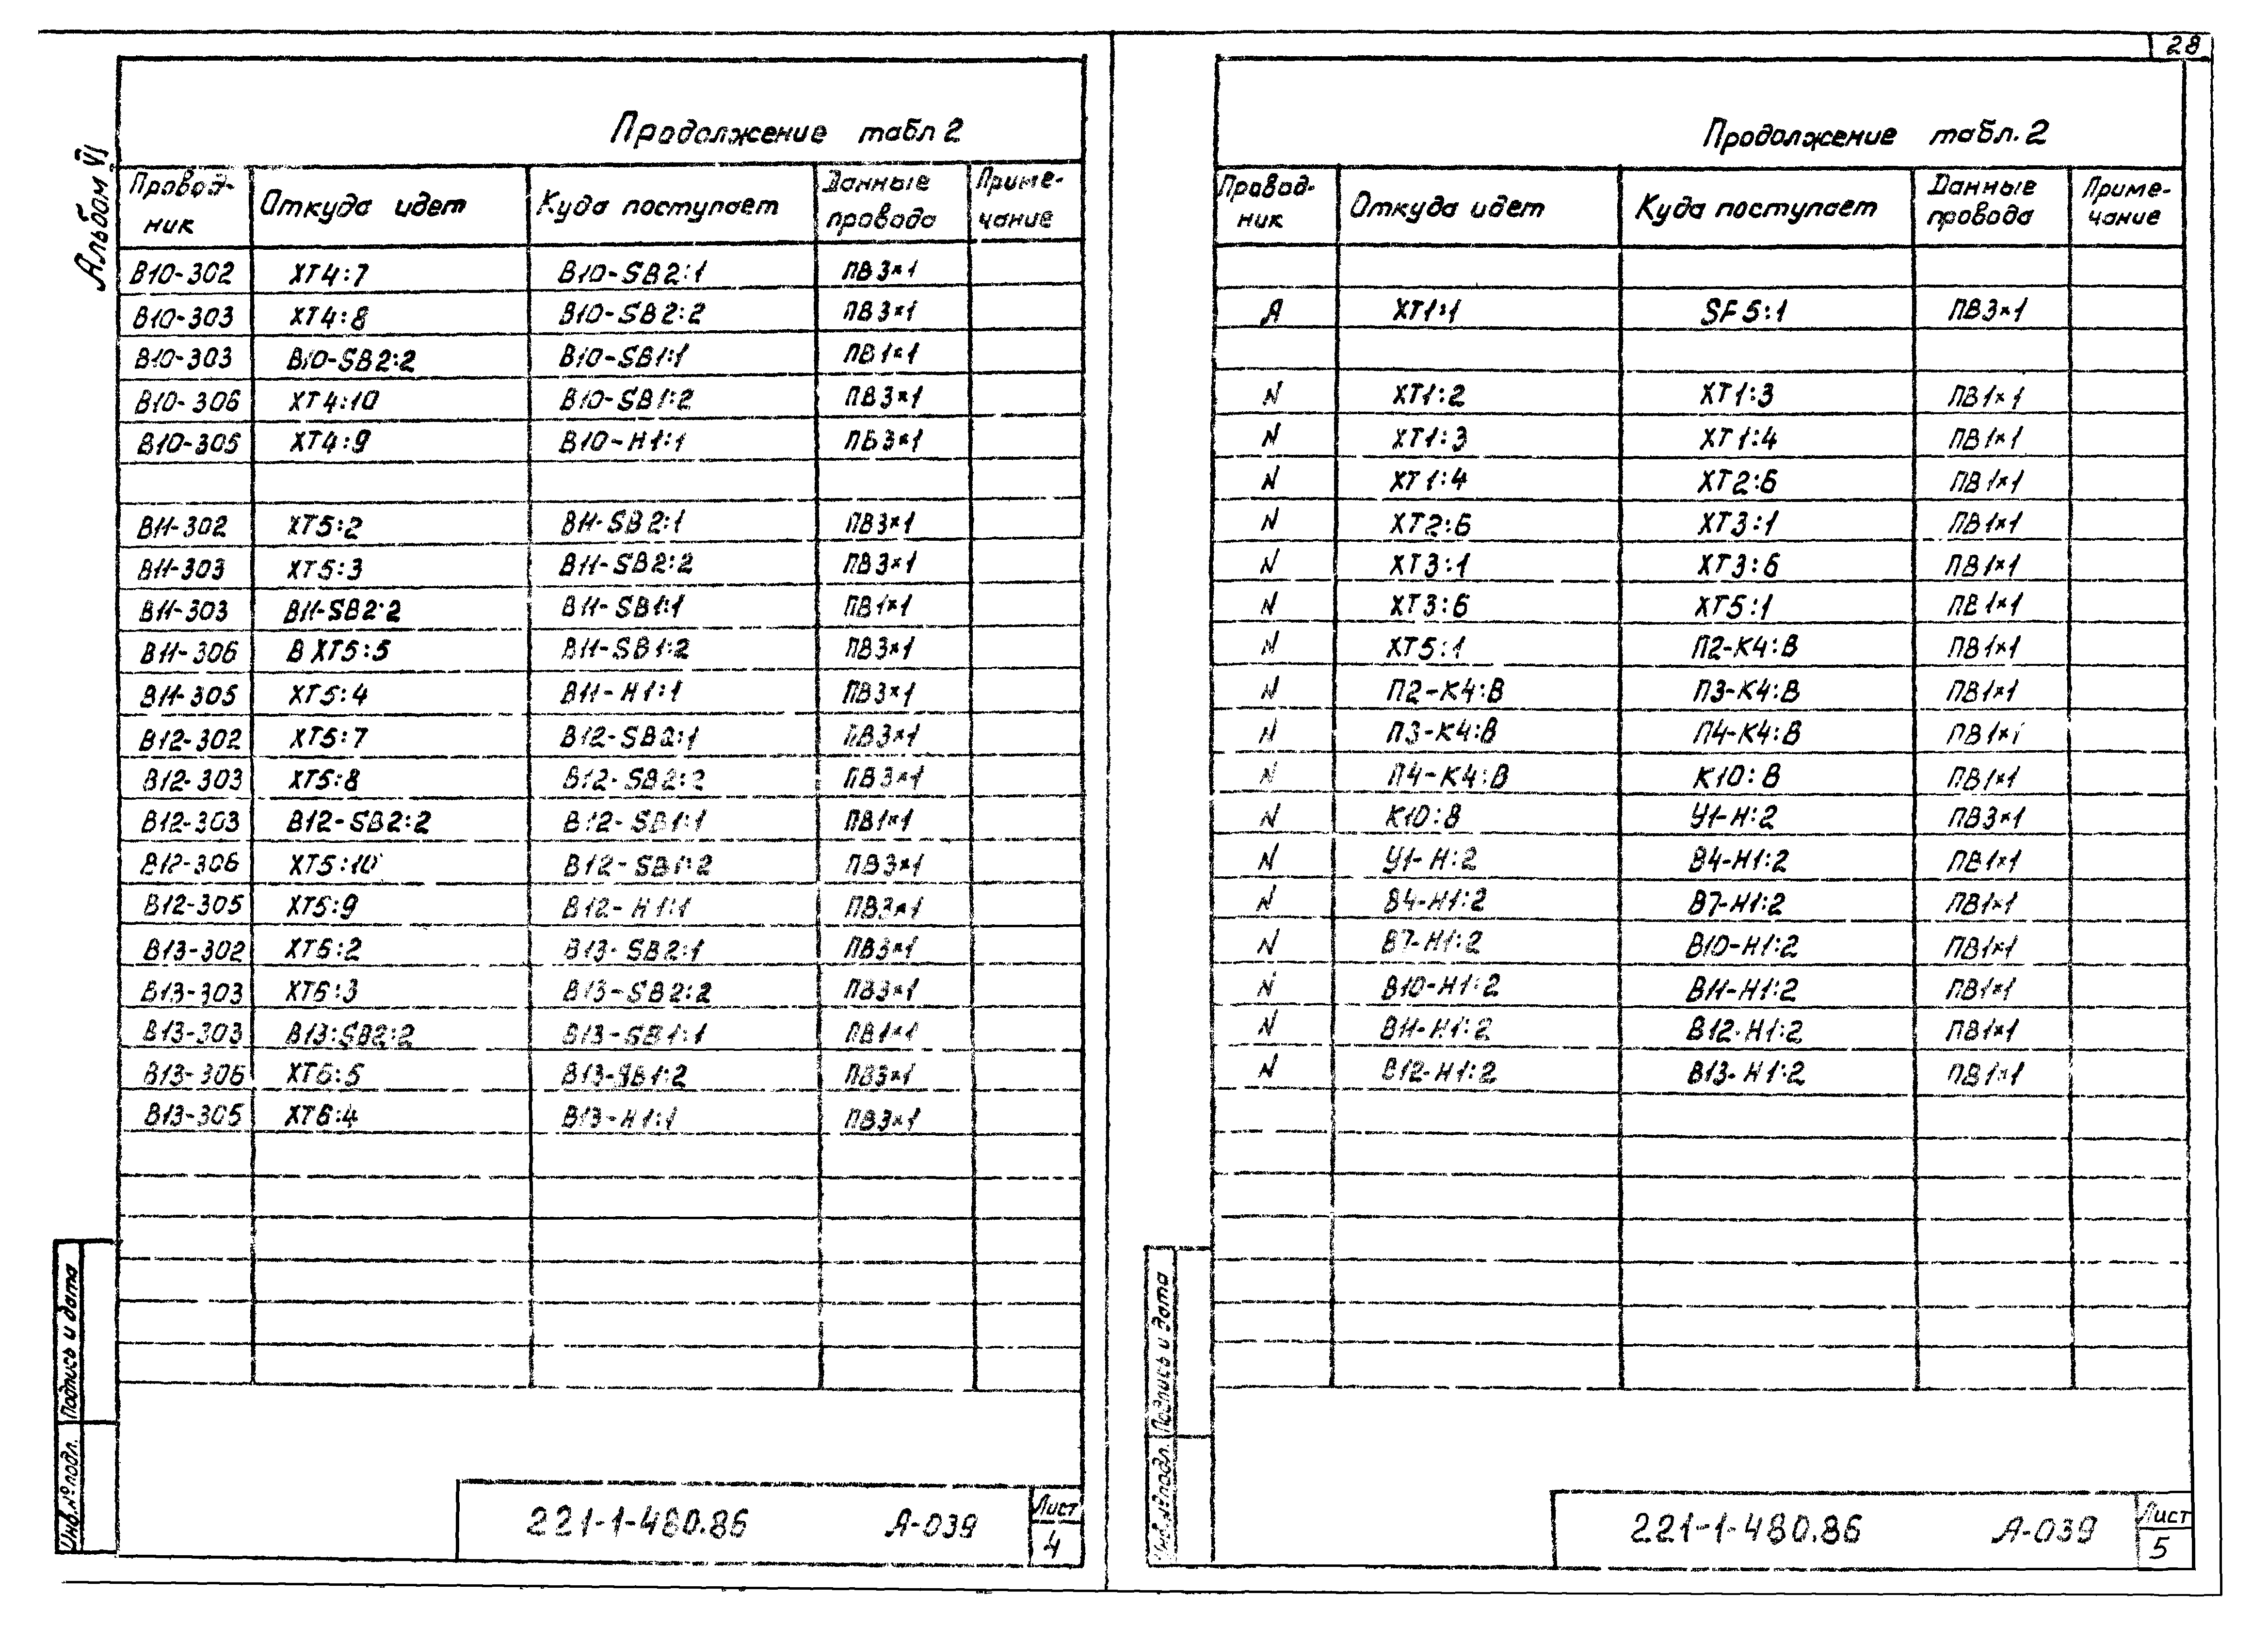 28
Альбом VI
Продолжение табл 2
Провод-ник Откуда идет Куда поступает Данные провода Приме-чание
В10-302 ХТ4:7 В10-SB2:1 ПВ3×1
В10-303 ХТ4:8 В10-SB2:2 ПВ3×1
В10-303 В10-SB2:2 В10-SB1:1 ПВ1×1
В10-306 ХТ4:10 В10-SB1:2 ПВ3×1
В10-305 ХТ4:9 В10-Н1:1 ПВ3×1
В11-302 ХТ5:2 В11-SB2:1 ПВ3×1
В11-303 ХТ5:3 В11-SB2:2 ПВ3×1
В11-303 В11-SB2:2 В11-SB1:1 ПВ1×1
В11-306 В ХТ5:5 В11-SB1:2 ПВ3×1
В11-305 ХТ5:4 В11-Н1:1 ПВ3×1
В12-302 ХТ5:7 В12-SB2:1 ПВ3×1
В12-303 ХТ5:8 В12-SB2:2 ПВ3×1
В12-303 В12-SB2:2 В12-SB1:1 ПВ1×1
В12-306 ХТ5:10 В12-SB1:2 ПВ3×1
В12-305 ХТ5:9 В12-Н1:1 ПВ3×1
В13-302 ХТ6:2 В13-SB2:1 ПВ3×1
В13-303 ХТ6:3 В13-SB2:2 ПВ3×1
В13-303 В13:SB2:2 В13-SB1:1 ПВ1×1
В13-306 ХТ6:5 В13-SB1:2 ПВ3×1
В13-305 ХТ6:4 В13-Н1:1 ПВ3×1
Подпись и дата
Инв.№подл.
221-1-480.86 А-039 Лист
4
Продолжение табл.2
Провод-ник Откуда идет Куда поступает Данные провода Приме-чание
А ХТ1:1 SF5:1 ПВ3×1
N ХТ1:2 ХТ1:3 ПВ1×1
N ХТ1:3 ХТ1:4 ПВ1×1
N ХТ1:4 ХТ2:6 ПВ1×1
N ХТ2:6 ХТ3:1 ПВ1×1
N ХТ3:1 ХТ3:6 ПВ1×1
N ХТ3:6 ХТ5:1 ПВ1×1
N ХТ5:1 П2-К4:В ПВ1×1
N П2-К4:В П3-К4:В ПВ1×1
N П3-К4:В П4-К4:В ПВ1×1
N П4-К4:В К10:В ПВ1×1
N К10:В У1-Н:2 ПВ3×1
N У1-Н:2 В4-Н1:2 ПВ1×1
N В4-Н1:2 В7-Н1:2 ПВ1×1
N В7-Н1:2 В10-Н1:2 ПВ1×1
N В10-Н1:2 В11-Н1:2 ПВ1×1
N В11-Н1:2 В12-Н1:2 ПВ1×1
N В12-Н1:2 В13-Н1:2 ПВ1×1
Подпись и дата
Инв.№подл.
221-1-480.86 А-039 Лист
5